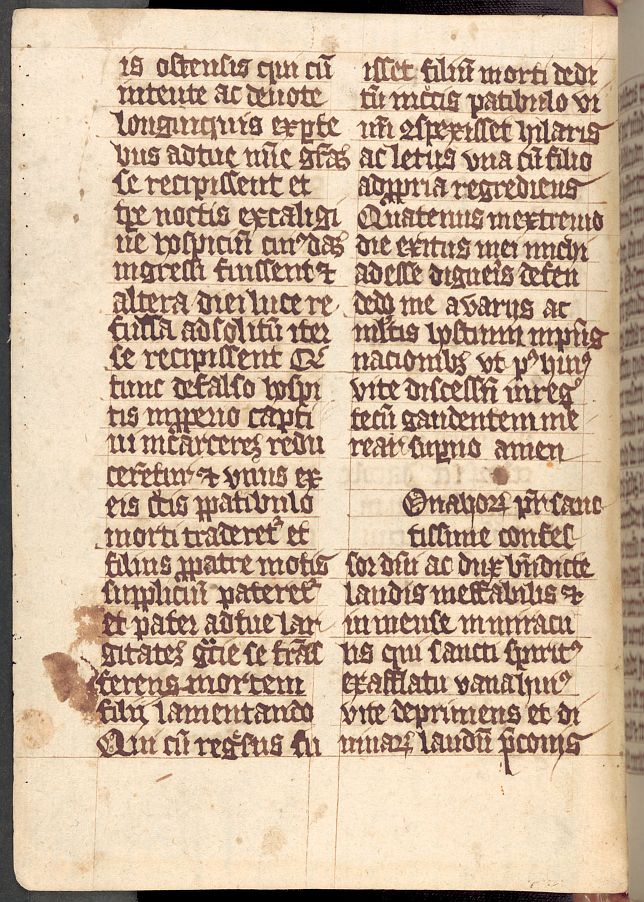 is ostensis qui cū
intente ac deuote
longinquis expte
bus adtue mīe gr̄as
se recipissent et
tpx noctis excaligi
ne hospiciū cuiꝰdā
ingressi fuissent ⁊
altera diei luce re
fulsa ad solitū iter
se recipissent
tunc de falso hospi
tis
ui incarcerez redu
cerētur ⁊ vnus ex
eis ꝑpatibulo
morti traderetᷣ et
filius ꝓpatre motis
suppliciū pateretᷣ
et pater adtue lar
gitatez gr̄cie se trāss
ferens mortem
filij lamentando
Qui cū regr̄sus fu
isset filiū morti dedi
tū patibulo vi
uū ꝯspexisset hilaris
ac letus vna cū filio
adꝓpria regrediens
Quatenus inextremo
die exitus mei michi
adesse digneris defen
dēdo me avarijs ac
hostium
nacionibꝫ vt pꝰ huiꝰ
vite discessū inregͦ
tecū gaudentem me
rear sumo amen
Qnahorꝝ pr̄ sanc
tissime confes
sor dn̄i ac dux vn̄dicte
laudis ineffabilis ⁊
in mense in miracu
lis qui sancti spiritꝰ
exafflatu vana huiꝰ
vite deprimens et di
uinarꝝ laudū p̄conijs